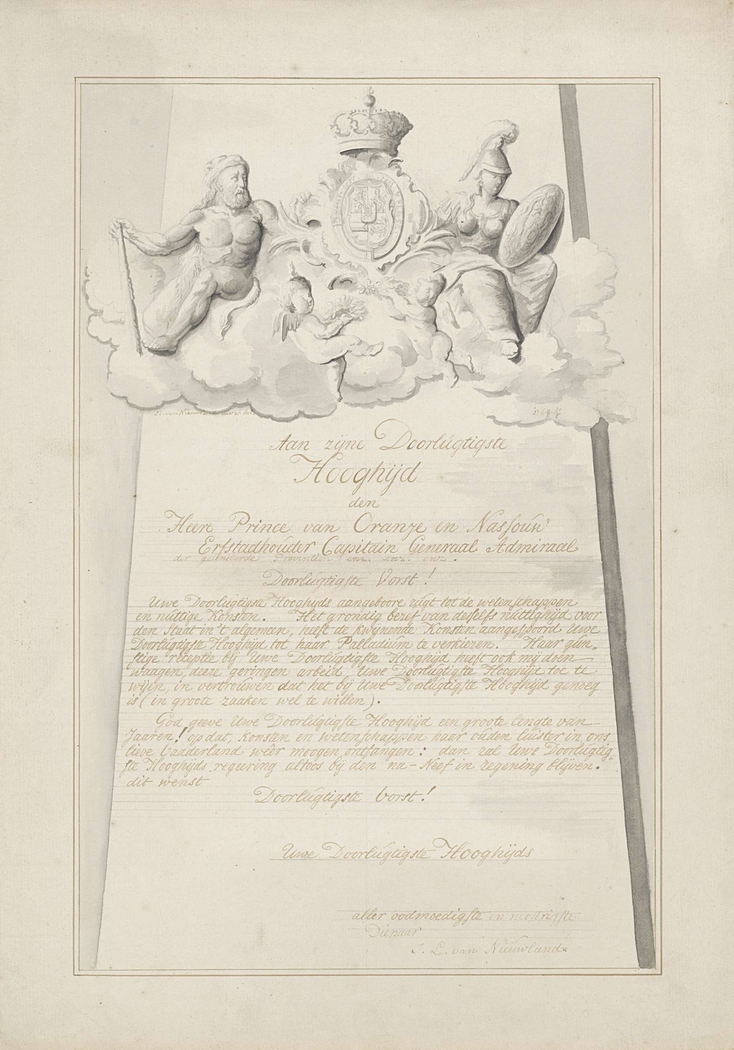 1769
Aan zijne Doorlugtigste
Hooghijd
den
Heere Prince van Oranje en Nassouw
Erfstadhouder Capitain Generaal Admiraal
der Provintien enz. enz. enz.
Doorlugtigste Vorst!
Uwe Doorlugtigste Hooghijds aangeboore zugt tot de wetenschappen
en nuttige Konsten. Het grondig bezef van deselfs nuttighijd voor
den Staat in't algemen, heeft de kwynende Konsten aangespoord Uwe
Doorlugtigste Hooghijd tot haar Palladium te verkiezen. Haar gun-
stige receptie bij Uwe Doorlugtigste Hooghijd heeft ook mij doen
waagen, deze geringen arbeid Uwe Doorlugtigste Hooghijd toe te
wijen, in vertrouwen dat het bij Uwe Doorlugtigste Hooghijd genoeg
is (in groote zaaken wel te willen).
God geeve Uwe Doorlugtigste Hooghijd een groote lengte van
Jaaren! op dat, konsten en Wetenschappen haar ouden luister in ons
lieve Vaaderland weer moogen ontfangen: dan zal Uwe Doorlugtig-
ste Hooghijds regeering altoos bij den na-Neef in zegening blijven.
dit wenst
Doorlugtigste Vorst!
Uwe Doorlugtigste Hooghijds
aller oodmoedigste en
Dienaar
J. L. van Nieuwland